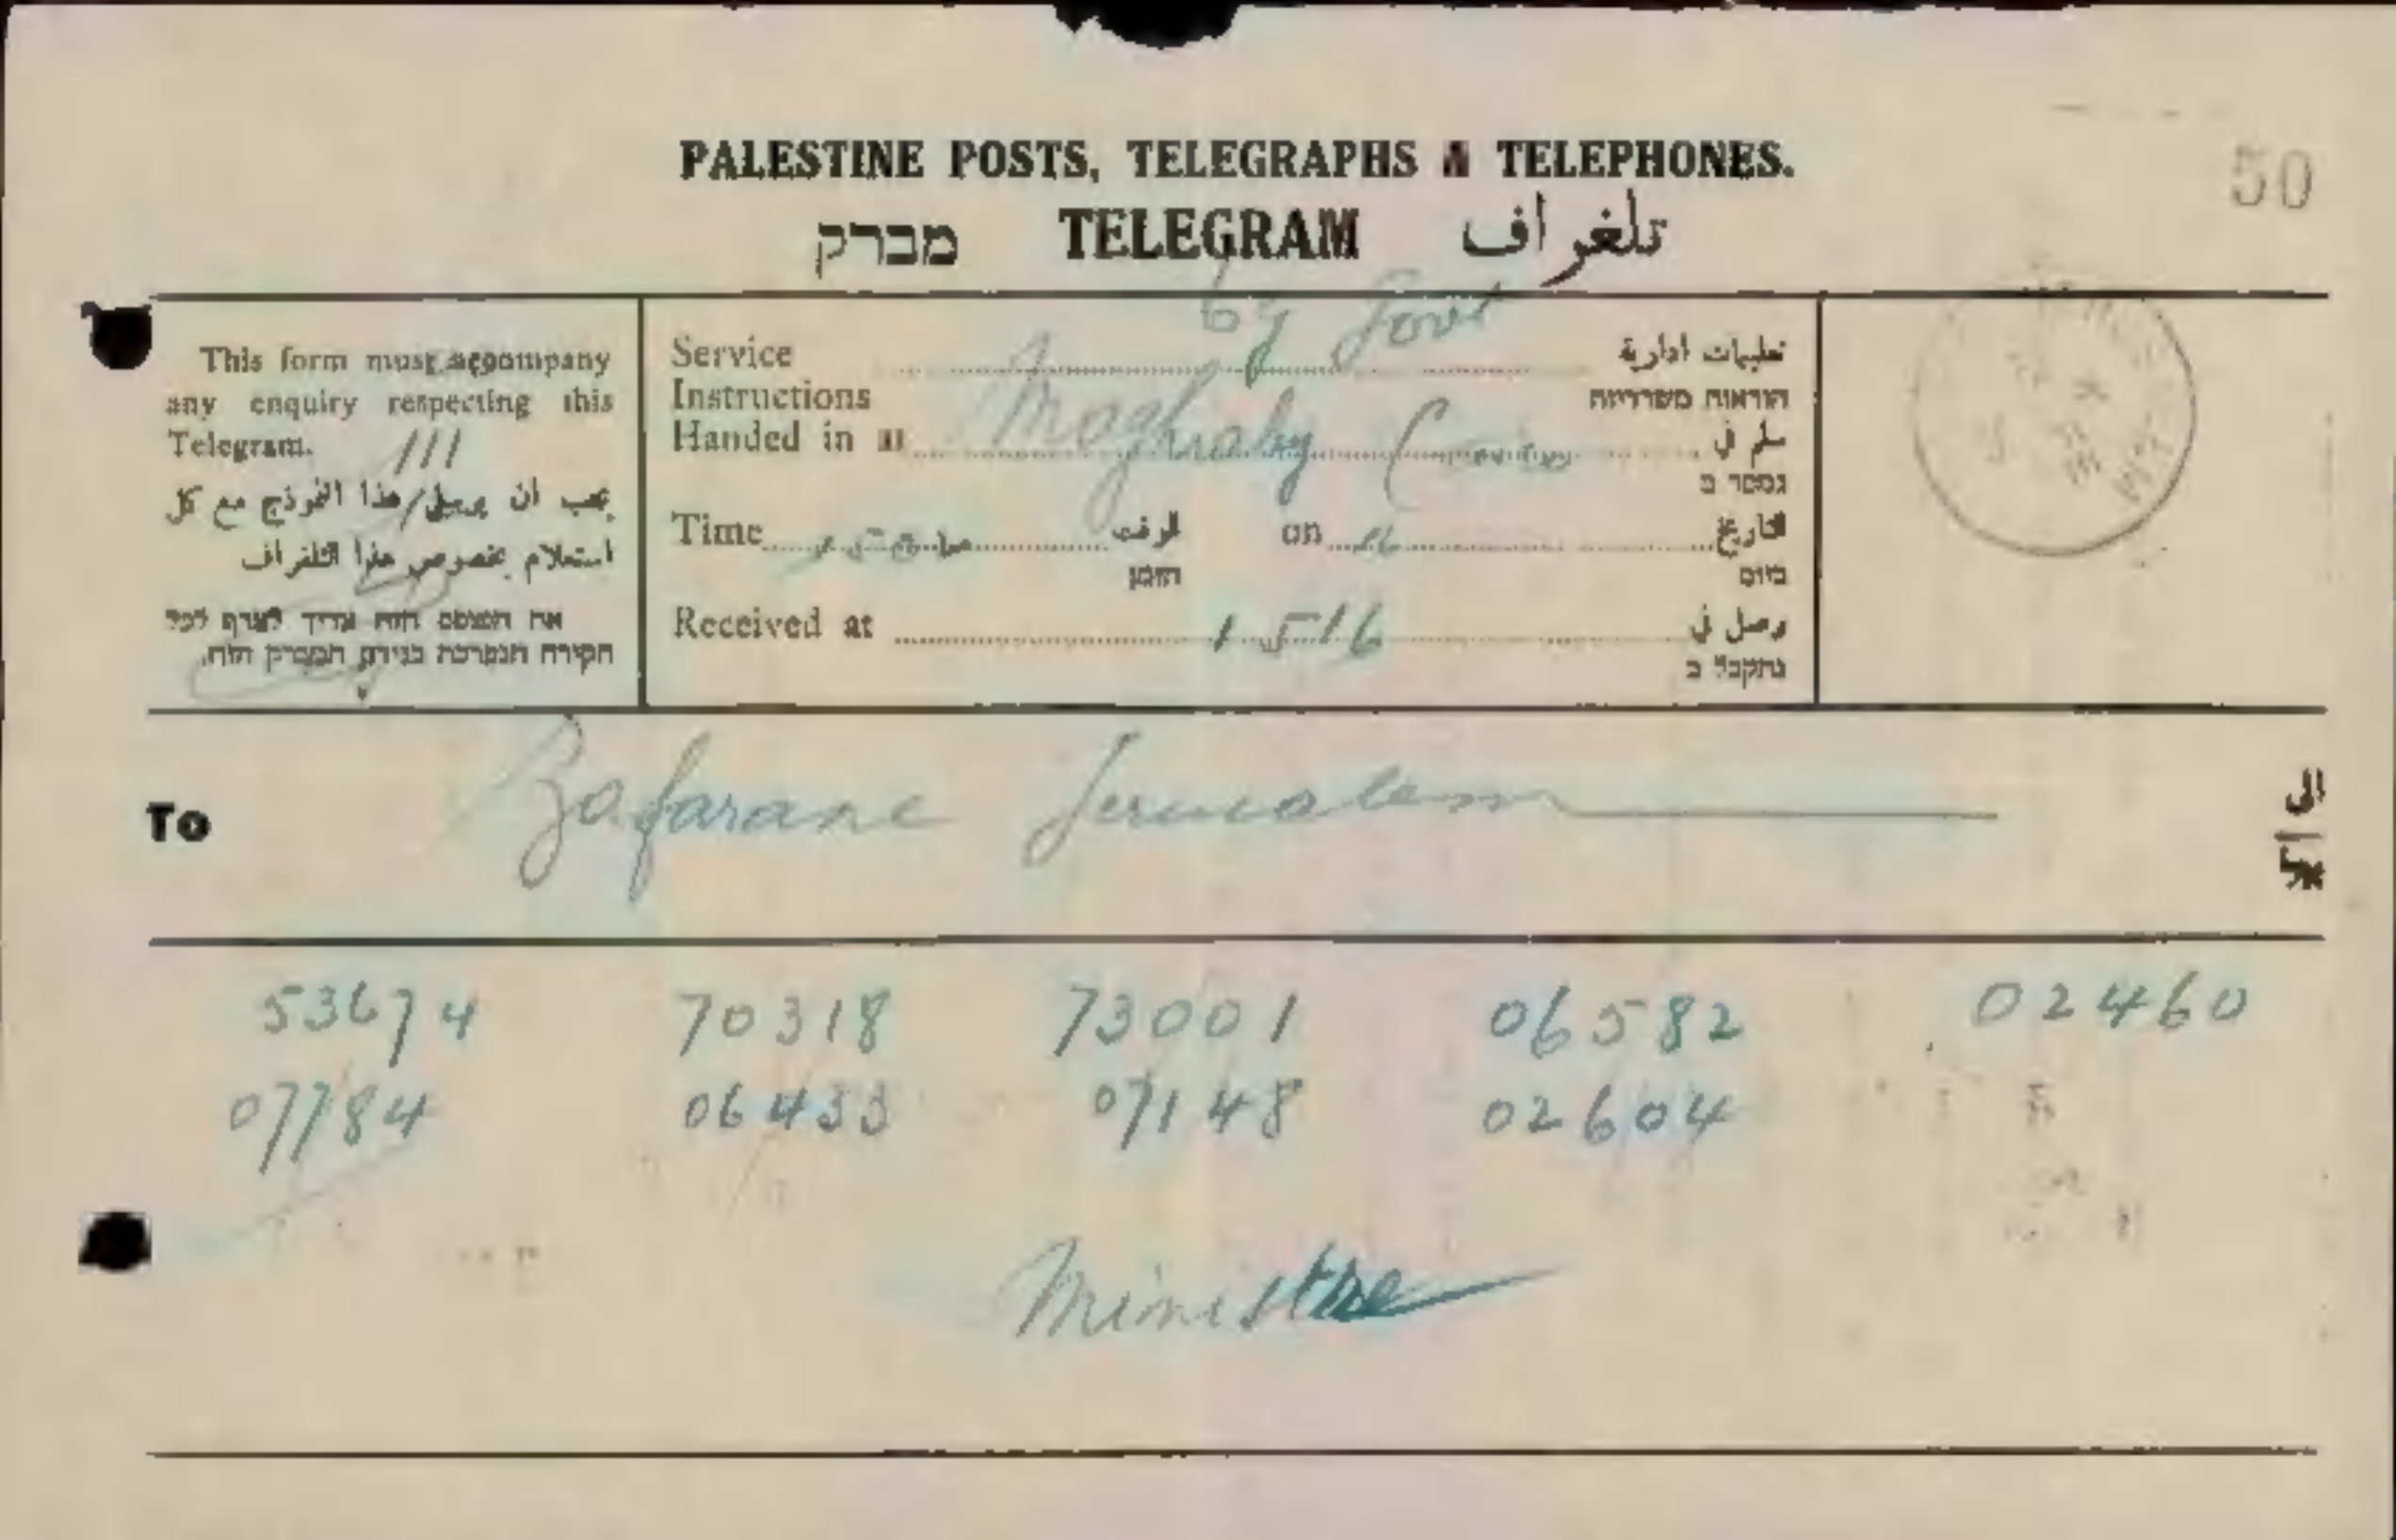 PALESTINE POSTS, TELEGRAPHS & TELEPHONES.
50
מברק TELEGRAM تلغراف
This form must accompany
any enquiry respecting this
Telegram.
111
يجب ان يرسل هذا النموذج مع كل
استعلام بخصوص هذا التلغراف
את הטופס הזה צריך לצרף לכל
חקירה הנערכת בנידון המברק הזה.
by Govt
Service تعليمات ادارية
Instructions הוראות משרדיות
Handed in at Moghraby سلم في
נמסר ב
Time الوقت on 16 التاريخ
הזמן ביום
Received at 1516 وصل في
נתקבל ב
To Zafarane Jerusalem الى
אל
53674 70318 73001 06582 02460
07784 06433 07148 02604
Ministre